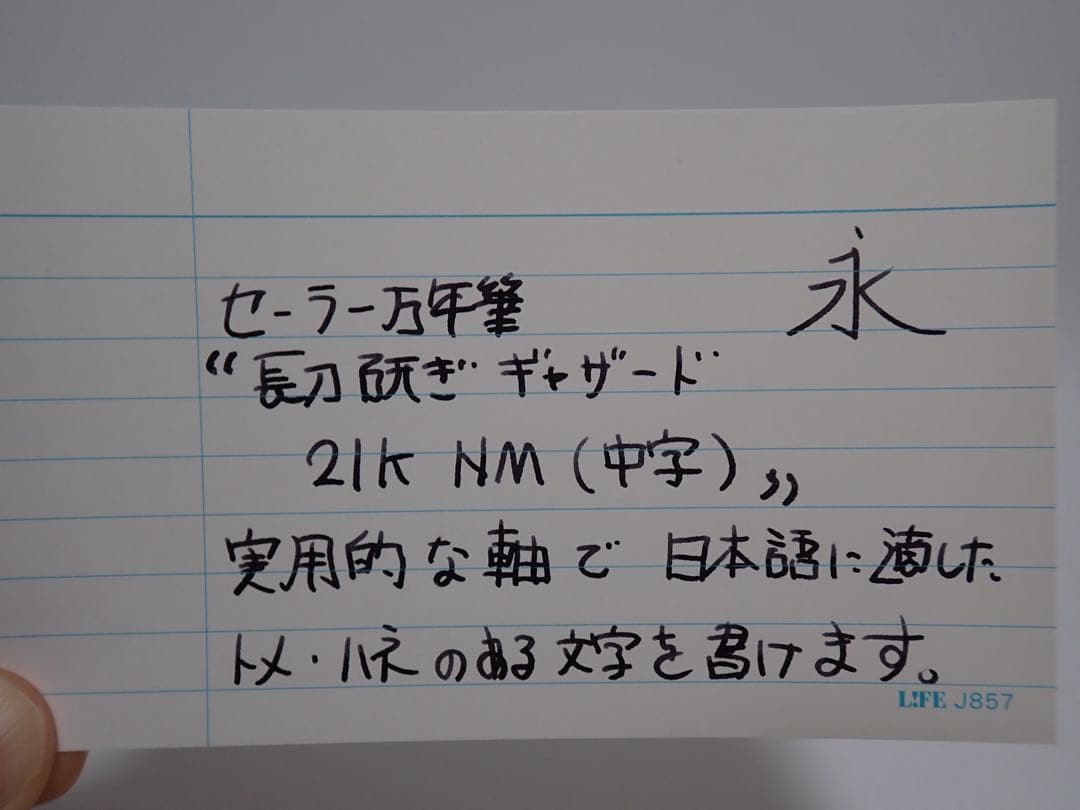 永
セーラー万年筆
“長刀研ぎ ギャザード
21K NM (中字)„
実用的な軸で 日本語に適した
トメ・ハネのある文字を書けます。
L!FE J857